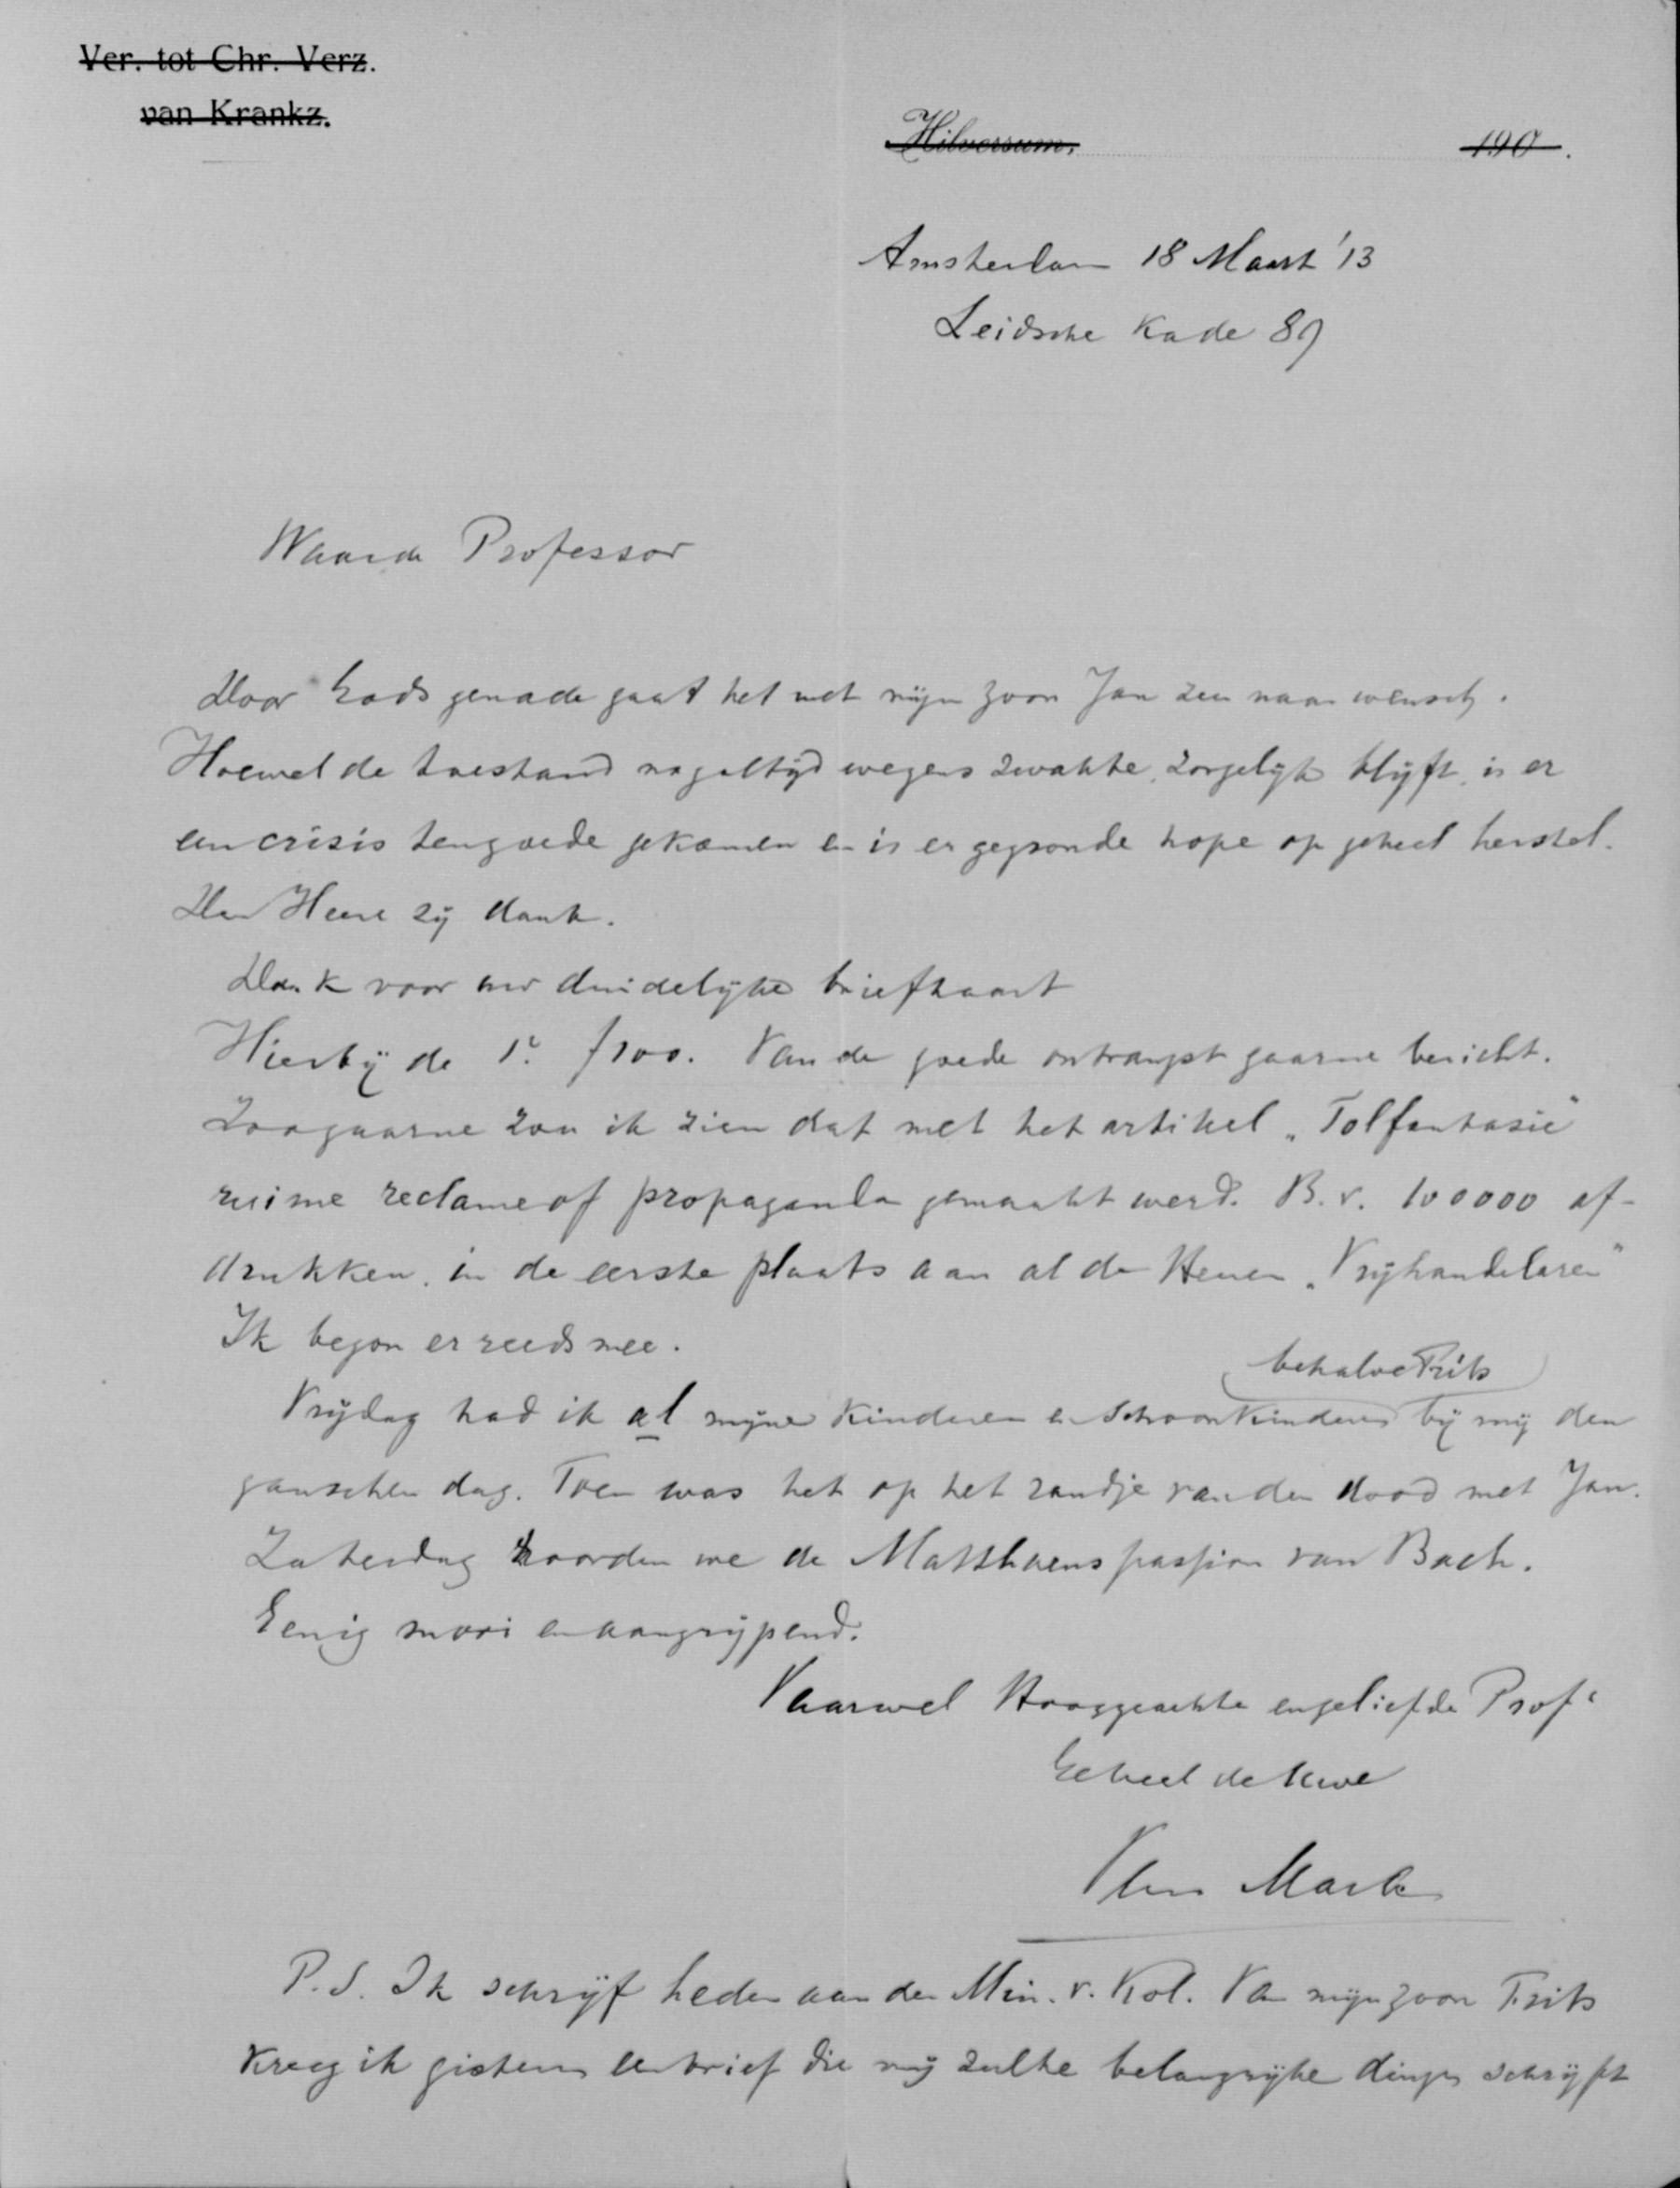 Ver. tot Chr. Verz.
van Krankz.
Hilversum, 190 .
Amsterdam 18 Maart '13
Leidsche Kade 89
Waarde Professor
Door Gods genade gaat het met mijn zoon Jan zeer naar wensch.
Hoewel de toestand nog altijd wegens zwakte, zorgelijk blijft, is er
een crisis ten goede gekomen en is er gegronde hope op geheel herstel.
Den Heere zij dank.
Dank voor uw duidelijke briefkaart
Hierbij de 1e f100. Van de goede ontvangst gaarne bericht.
Zoo gaarne zou ik zien dat met het artikel „Tolfantasie"
ruime reclame of propaganda gemaakt werd. B.v. 100000 af-
drukken, in de eerste plaats aan al de Heeren „Vrijhandelaren"
Ik begon er reeds mee.
behalve Frits
Vrijdag had ik al mijne kinderen en schoonkinderen bij mij den
ganschen dag. Toen was het op het randje van den dood met Jan.
Zaterdag hoorden we de Matthaeus passion van Bach.
Eenig mooi en aangrijpend.
Vaarwel Hooggeachte en geliefde Prof.
Geheel de Uwe
Van Mark
P.S. Ik schrijf heden aan den Min. v. Kol. Van mijn zoon Frits
kreeg ik gisteren een brief die mij zulke belangrijke dingen schrijft